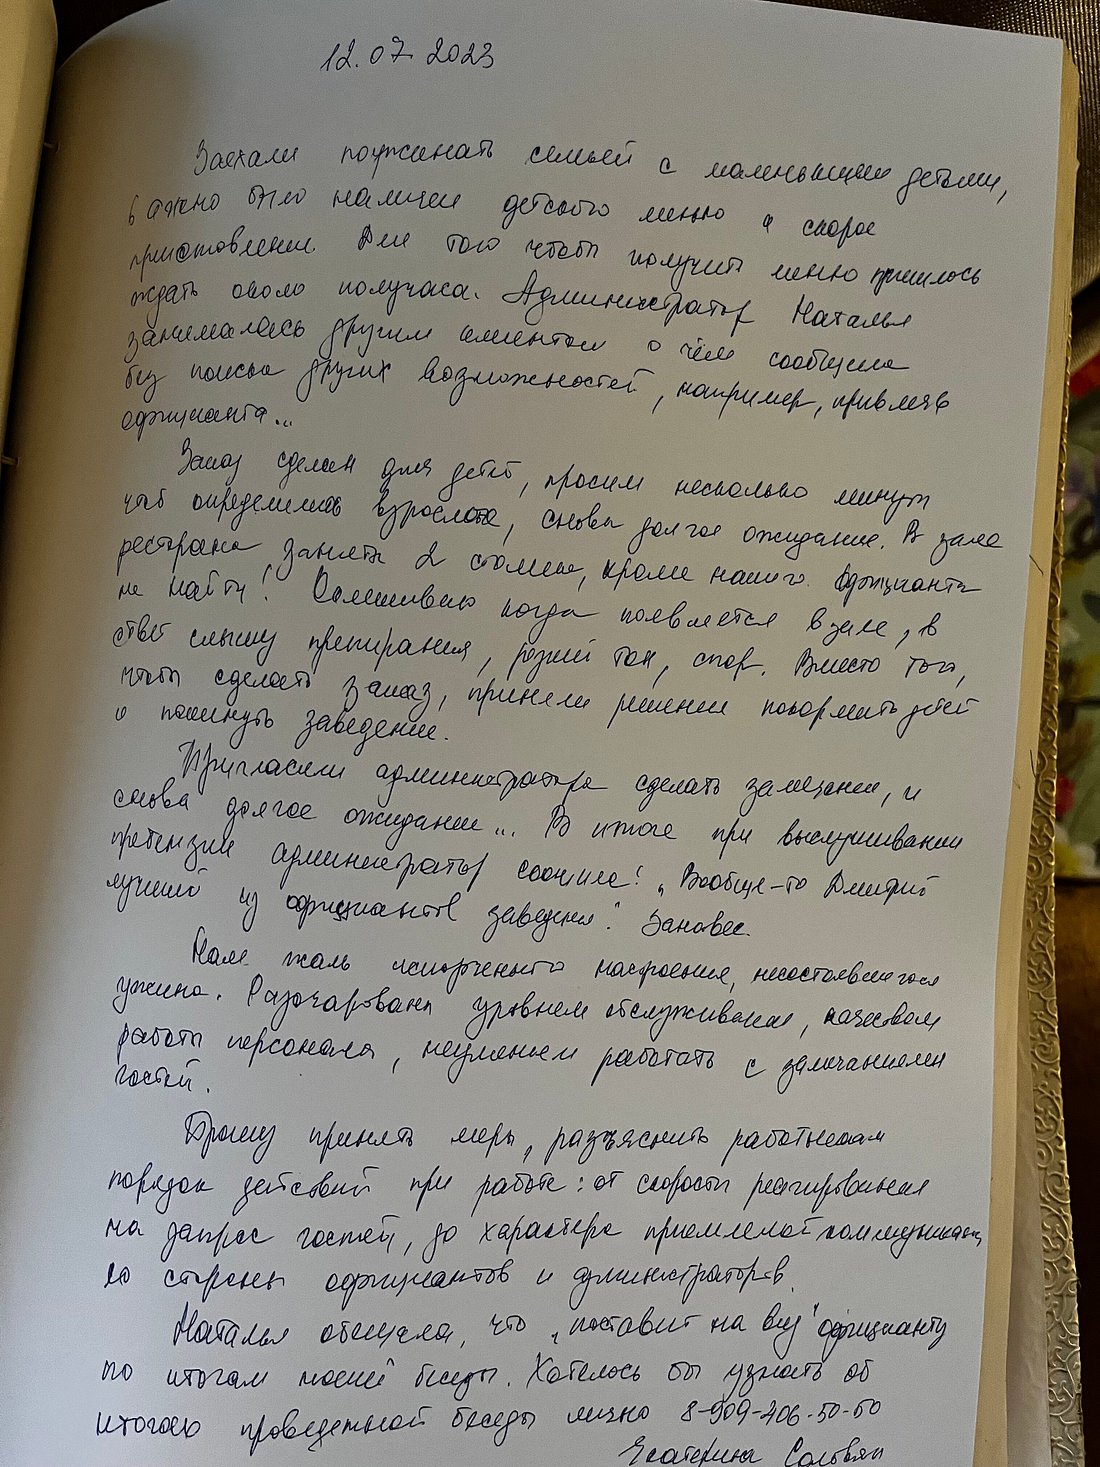 12.07.2023
Заехали поужинать семьей с маленькими детьми,
важно было наличие детского меню и скорое
приготовление. Для того чтобы получить меню пришлось
ждать около получаса. Администратор Наталья
занималась другим клиентом о чём сообщила
без поиска других возможностей, например, привлечь
официанта...
Заказ сделан для детей, просим несколько минут
чтоб определились взрослые, снова долгое ожидание. В зале
ресторана заняты 2 столика, кроме нашего. Официанта
не найти! Спрашиваю когда появляется в зале, в
ответ слышу препирания, резкий тон, спор. Вместо того,
чтобы сделать заказ, приняли решение покормить детей
и покинуть заведение.
Пригласили администратора сделать замечание, и
снова долгое ожидание... В итоге при выслушивании
претензии администратор сообщила: "Вообще-то Дмитрий
лучший из официантов заведения". Занавес.
Нам жаль испорченного настроения, несостоявшегося
ужина. Разочарованы уровнем обслуживания, качеством
работы персонала, неумением работать с замечаниями
гостей.
Прошу принять меры, разъяснить работникам
порядок действий при работе: от скорости реагирования
на запрос гостей, до характера приемлемой коммуникации
со стороны официантов и администраторов.
Наталья обещала, что "поставит на вид" официанту
по итогам моей беседы. Хотелось бы узнать об
итогах проведенной беседы лично 8-909-406-50-50
Екатерина